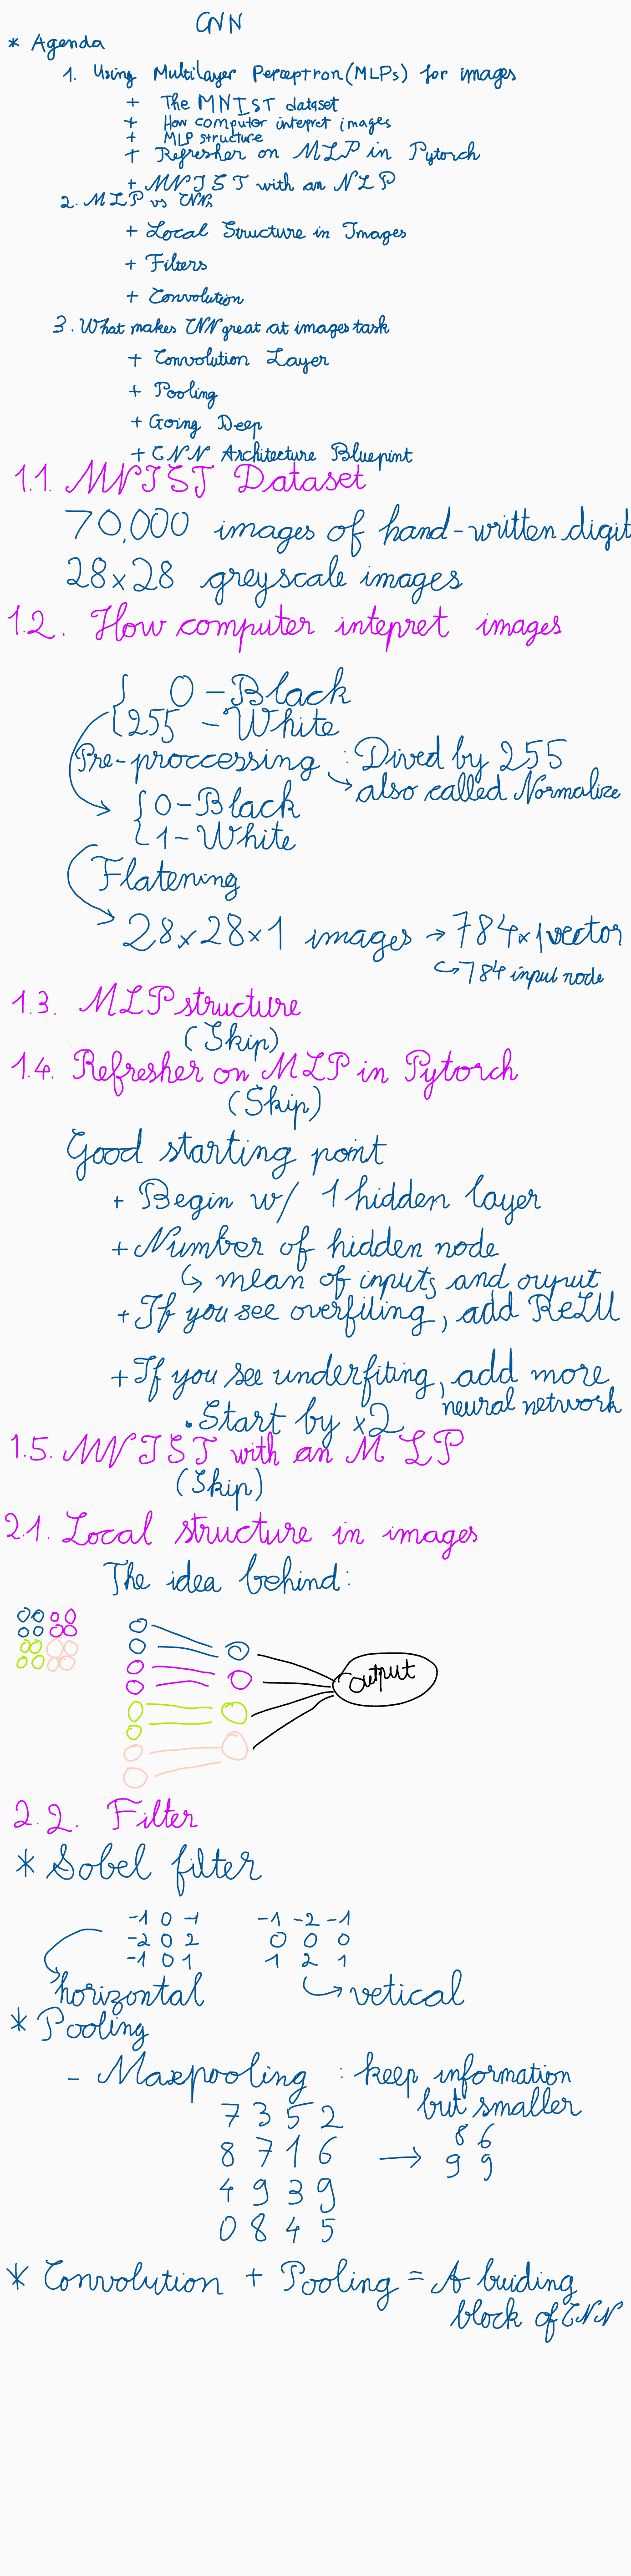 CNN
* Agenda
1. Using Multilayer Perceptron (MLPs) for images
+ The MNIST dataset
+ How computer intepret images
+ MLP structure
+ Refresher on MLP in Pytorch
+ MNIST with an NLP
2. MLP vs CNNs
+ Local Structure in Images
+ Filters
+ Convolution
3. What makes CNN great at images task
+ Convolution Layer
+ Pooling
+ Going Deep
+ CNN Architecture Bluepint
1.1. MNIST Dataset
70,000 images of hand-written digit
28x28 greyscale images
1.2. How computer intepret images
{ 0 - Black
{ 255 - White
Pre-proccessing : Dived by 255
↪ also called Normalize
{ 0 - Black
{ 1 - White
Flatening
28x28x1 images → 784x1 vector
↪ 784 input node
1.3. MLP structure
(Skip)
1.4. Refresher on MLP in Pytorch
(Skip)
Good starting point
+ Begin w/ 1 hidden layer
+ Number of hidden node
↪ mean of inputs and ouput
+ If you see overfiting, add ReLU
+ If you see underfiting, add more
neural network
. Start by x2
1.5. MNIST with an MLP
(Skip)
2.1. Local structure in images
The idea behind:
output
2.2. Filter
* Sobel filter
-1 0 -1 -1 -2 -1
-2 0 2 0 0 0
-1 0 1 1 2 1
horizontal ↪ vetical
* Pooling
- Maxpooling : keep information
but smaller
7 3 5 2
8 7 1 6 → 8 6
4 9 3 9 9 9
0 8 4 5
* Convolution + Pooling = A buiding
block of CNN